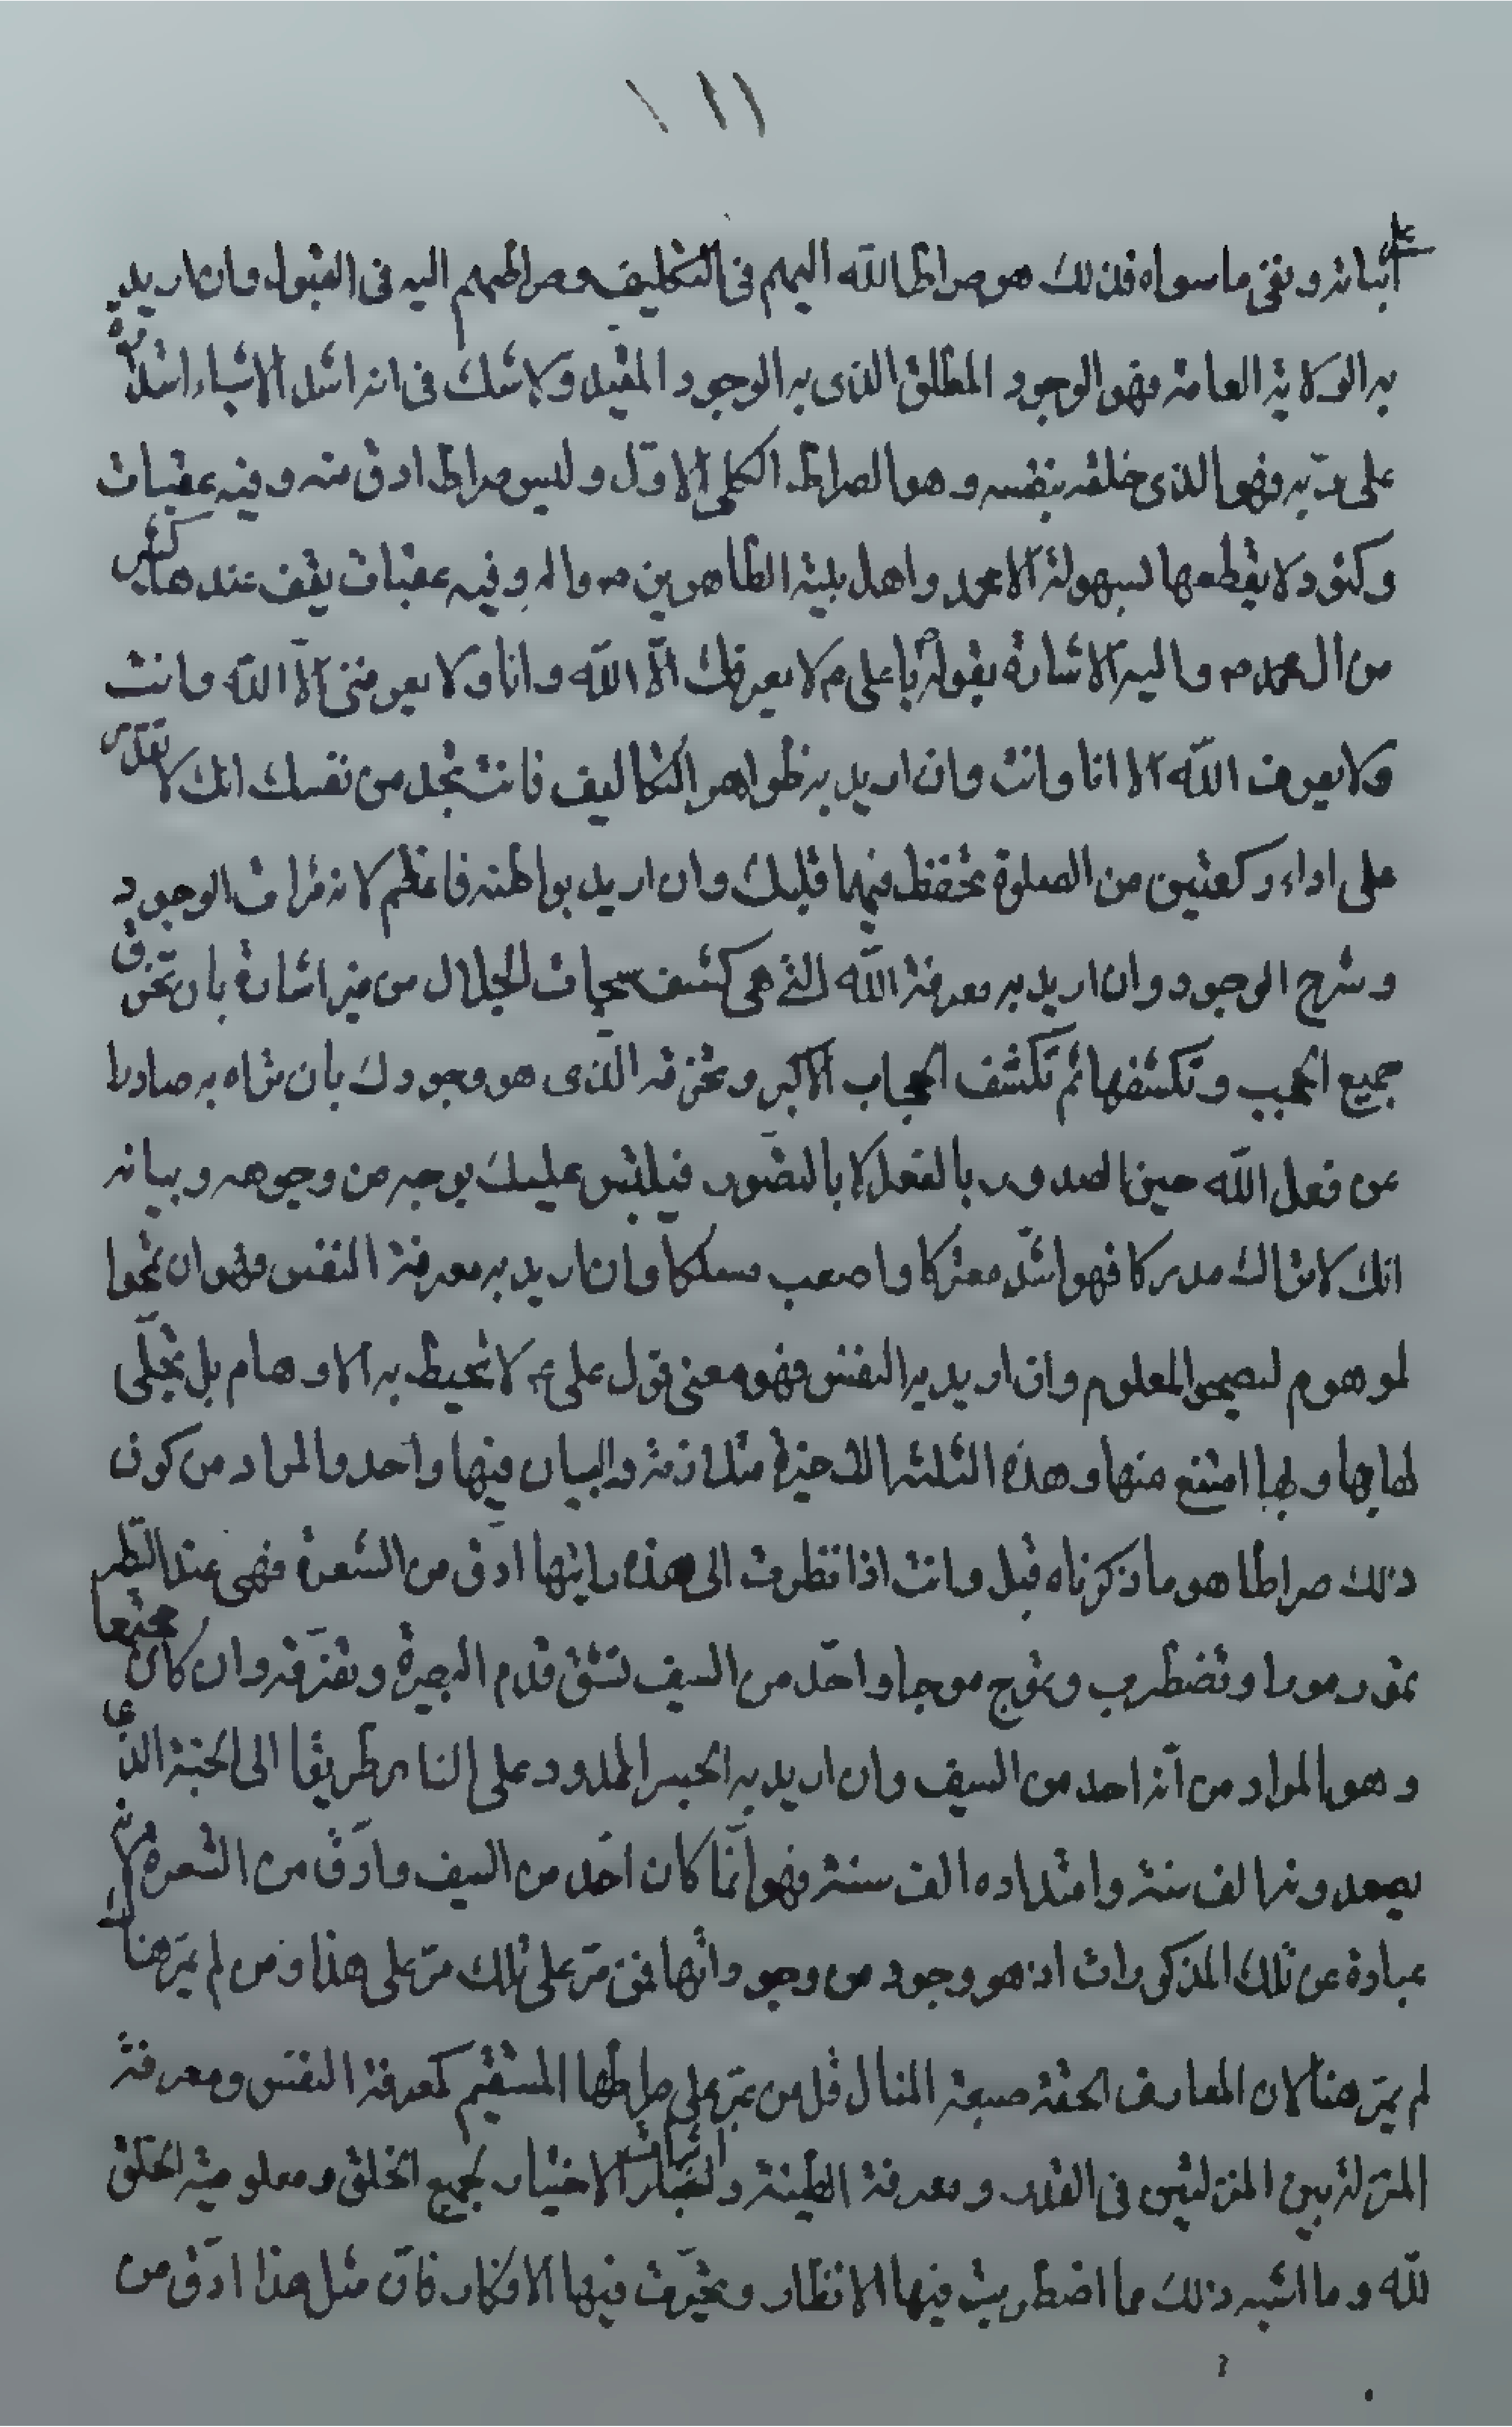 ١١١
اثباته ونفى ما سواه فذلك هو صراط الله اليهم فى التكليف وصراطهم اليه فى القبول وان اريد
به الولاية العامة فهو الوجود المطلق الذى به الوجود المقيد ولا شك فى انه اشد الاشياء اشد
على ربه فهو الذى خلقه بنفسه وهو الصراط الكلى الاول وليس صراط ادق منه وفيه عقبات
وكئود لا يقطعها بسهولة الا محمد واهل بيته الطاهرين ص واله وفيه عقبات يقف عندها كثير
من ال محمد ص واليه الاشارة بقوله ص يا على م لا يعرفك الّا الله وانا ولا يعرفنى الّا الله وانت
ولا يعرف الله الا انا وانت وان اريد به ظواهر التكاليف فانت تجد من نفسك انك لا تقدر
على اداء ركعتين من الصلوة تحفظ فيهما قلبك وان اريد بواطنه فاعظم لانه الوجود
وشرح الوجود وان اريد به معرفة الله التى هى كشف سبحات الجلال من غير اشارة بان تخرق
جميع الحجب وتكشفها ثم تكشف الحجاب الاكبر وتخرقه الّذى هو وجودك بان تراه به صادرا
من فعل الله حين الصدور بالفعل لا بالتصّور فيلتبس عليك بوجه من وجوهه وبيانه
انك لا تزال مدركا فهو اشدّ معتركا واصعب مسلكا وان اريد به معرفة النفس فهو ان تمحوا
لموهوم لصحو المعلوم وان اريد به النفس فهو معنى قول على ع لا تحيط به الاوهام بل تجلّى
لها بها وبها امتنع منها وهذه الثلثة الاخيرة متلازمة والبيان فيها واحد والمراد من كون
ذلك صراطا هو ما ذكرناه قبل وانت اذا نظرت الى هذه رايتها ادق من الشعرة فهى عند النّظر
تمور مورا وتضطرب وتموج موجا واحّد من السيف تشق قدم البصيرة وتفرّقه وان كان مجتمعا
وهو المراد من انّه احد من السيف وان اريد به الجسر الممدود على النار طريقا الى الجنة الذى
صعوده الف سنة وامتداده الف سنة فهو انّما كان احّد من السيف وادّق من الشعرة لانه
عبارة عن تلك المذكورات اذ هو وجود من وجوداتها فمن مرّ على تلك مرّ على هذا ومن لم يمرّ هناك
لم يمرّ هنا لان المعارف الحقة صعبة المنال قل من يمرّ على صراطها المستقيم كمعرفة النفس ومعرفة
المنزلة بين المنزلتين فى القدر ومعرفة الطينة واثبات الاختيار لجميع الخلق ومعلومية الخلق
لله وما اشبه ذلك مما اضطربت فيها الانظار وتحيّرت فيها الافكار فانّ مثل هذا ادّق من